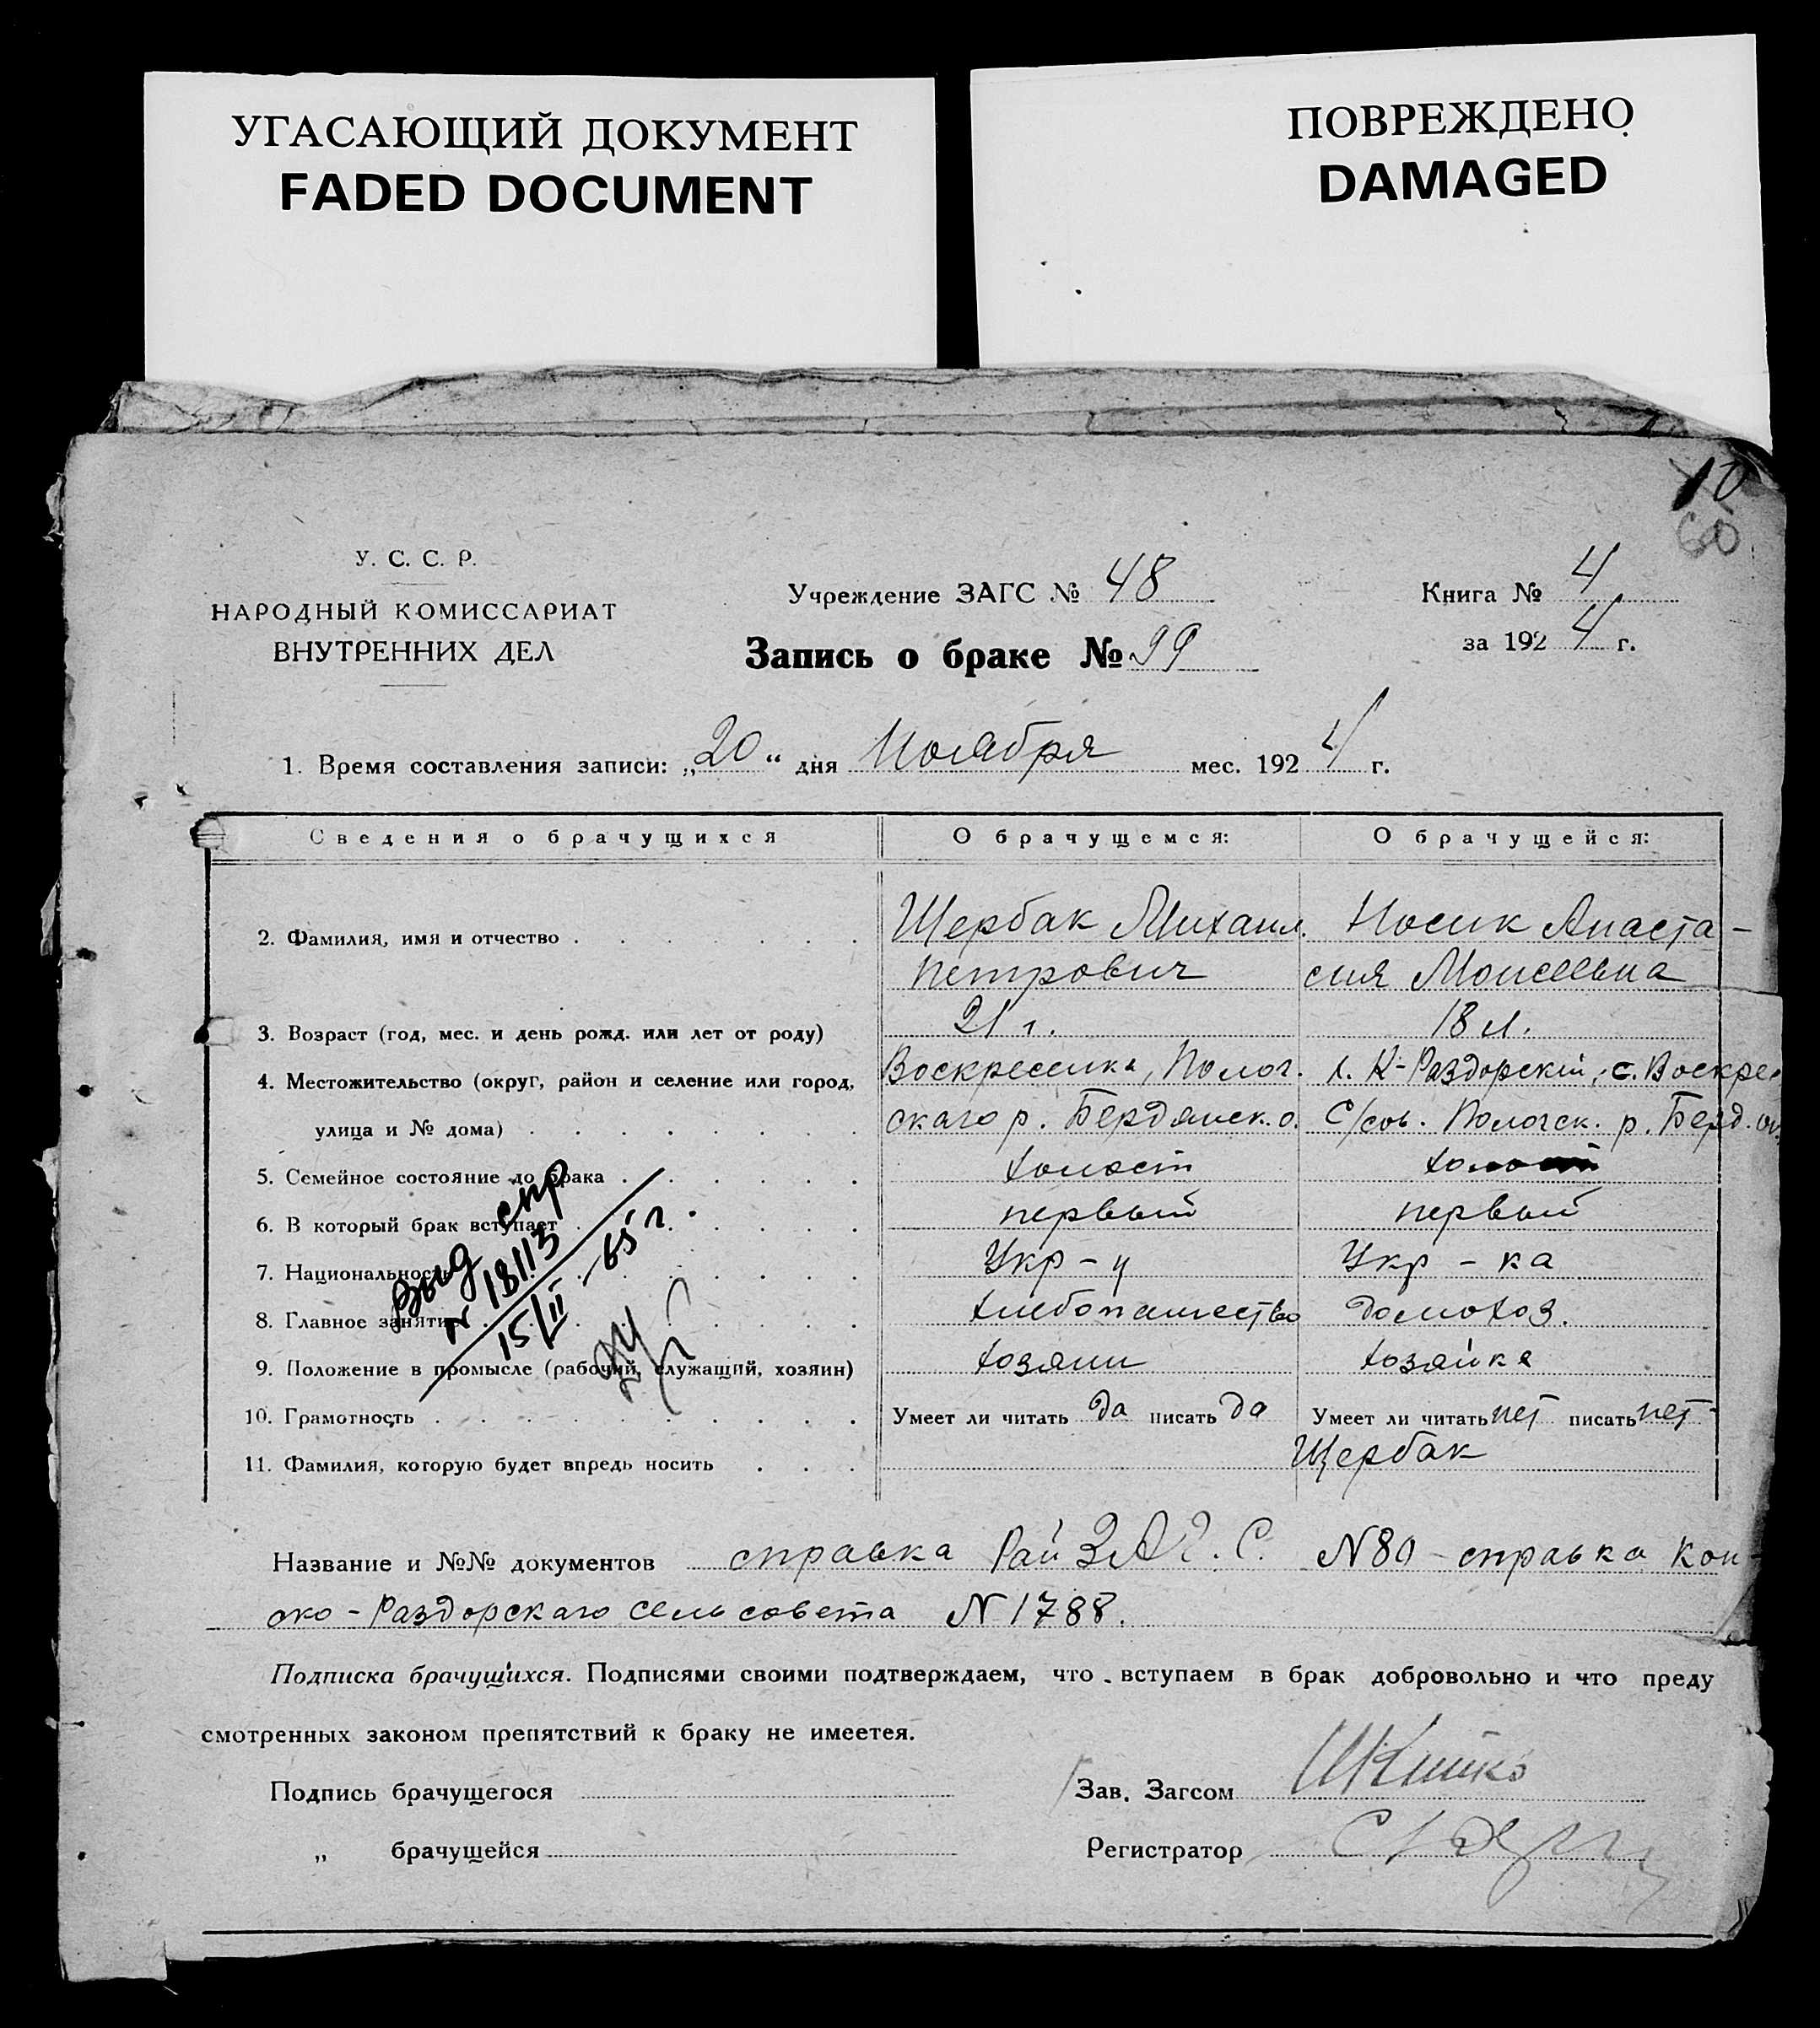 УГАСАЮЩИЙ ДОКУМЕНТ
FADED DOCUMENT
ПОВРЕЖДЕНО
DAMAGED
10
60
У. С. С. Р.
НАРОДНЫЙ КОМИССАРИАТ
ВНУТРЕННИХ ДЕЛ
Учреждение ЗАГС № 48
Запись о браке № 99
Книга № 4
за 1924 г.
1. Время составления записи: „20“ дня Ноября мес. 1924 г.
Сведения о брачущихся
О брачущемся:
О брачущейся:
2. Фамилия, имя и отчество
Щербак Михаил.
Петрович
Носик Анаста-
сия Моисеевна
3. Возраст (год, мес. и день рожд. или лет от роду)
21 г.
18 л.
4. Местожительство (округ, район и селение или город,
улица и № дома)
Воскресенка, Полог.
скаго р. Бердянск. о.
х. К-Раздорский, с. Воскре.
С/сов. Пологск. р. Берд. ок.
5. Семейное состояние до брака
холост
холост
6. В который брак вступает
первый
первый
7. Национальность
Укр-ц
Укр-ка
8. Главное занятие
хлебопашество
домохоз.
9. Положение в промысле (рабочий, служащий, хозяин)
хозяин
хозяйка
10. Грамотность
Умеет ли читать да писать да
Умеет ли читать нет писать нет
11. Фамилия, которую будет впредь носить
Щербак
Выд спр
N 18113
15/II-65 г.
Название и №№ документов справка Рай З.А.Г.С. N80 - справка Кон-
ско-Раздорскаго сельсовета N 1788.
Подписка брачущихся. Подписями своими подтверждаем, что вступаем в брак добровольно и что преду
смотренных законом препятствий к браку не имеетея.
Подпись брачущегося
„ брачущейся
Зав. Загсом
Регистратор